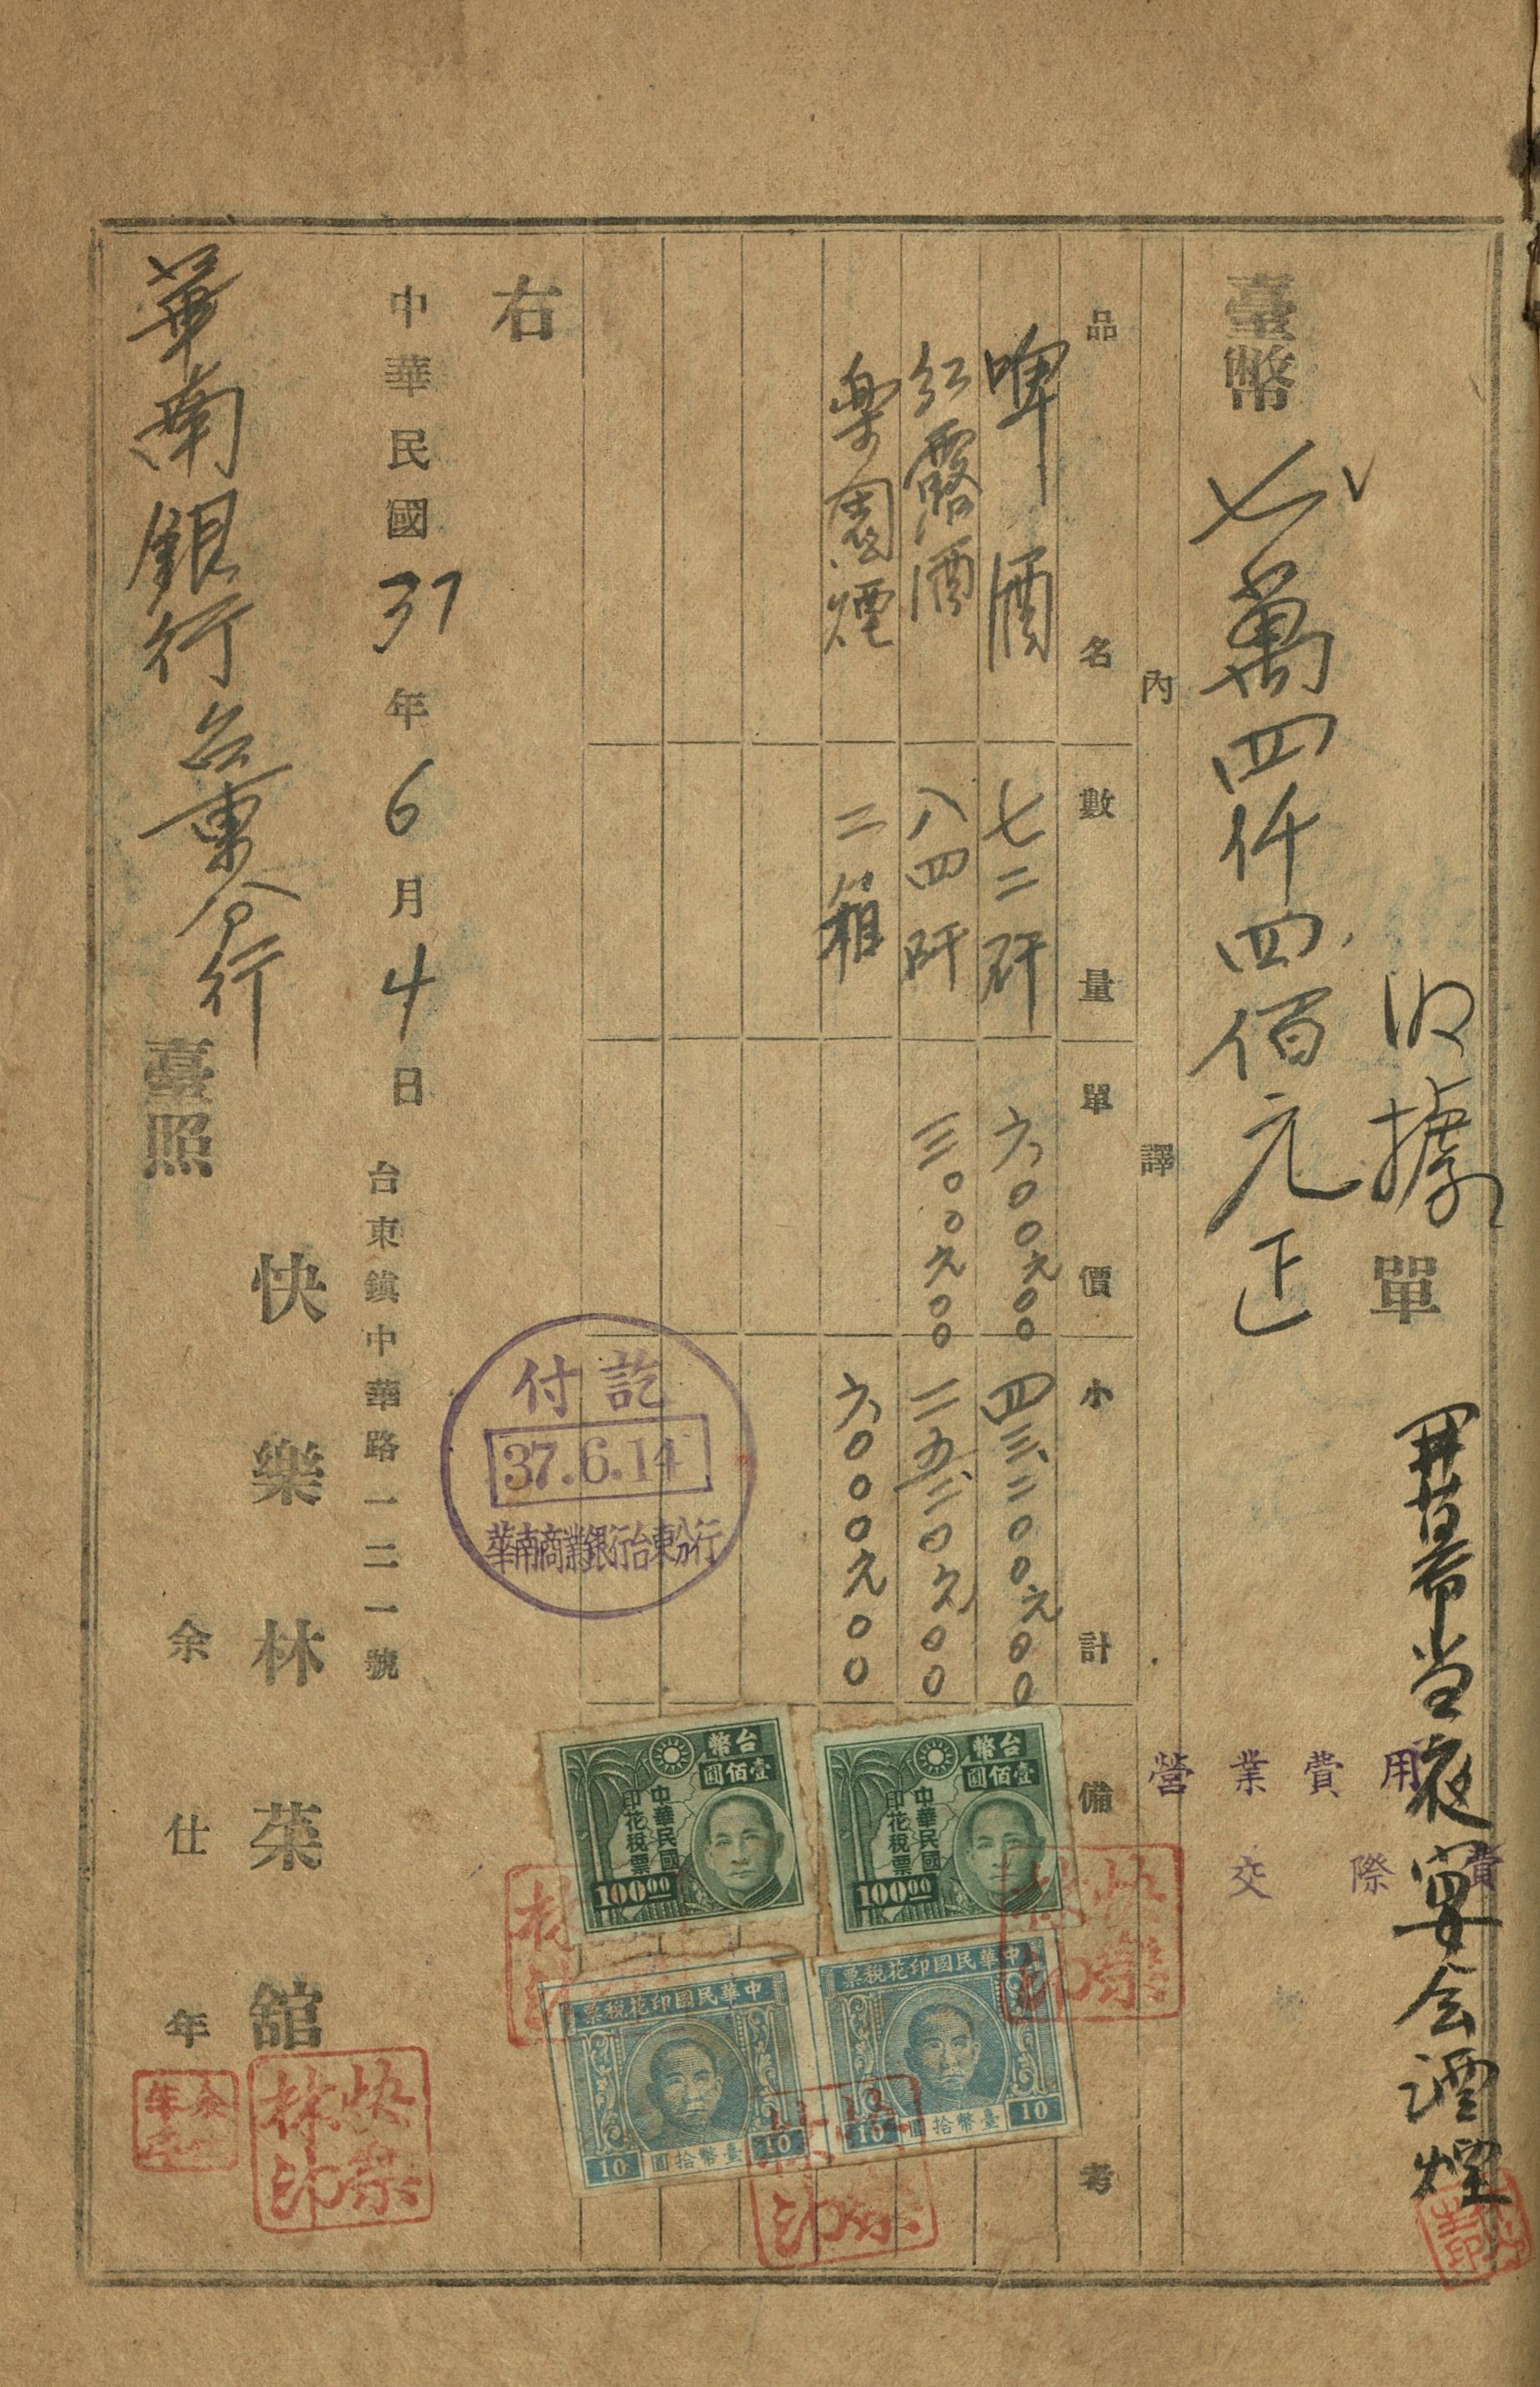 收據單
開幕当夜宴会酒煙
營業費用
交際費
臺幣 七萬四仟四佰元正
內譯
品名 數量 單價 小計 備考
啤酒 七二矸 六〇〇元〇〇 四三、二〇〇元〇〇
紅露酒 八四矸 三〇〇元〇〇 二五、二〇〇元〇〇
樂園煙 二箱 六、〇〇〇元〇〇
右
中華民國37年6月4日
台東鎮中華路一二一號
快樂林菜館
余仕年
華南銀行台東分行 臺照
付訖
37.6.14
華南商業銀行台東分行
台幣
壹佰圓
中華民國
印花稅票
100.00
台幣
壹佰圓
中華民國
印花稅票
100.00
中華民國印花稅票
10 臺幣拾圓 10
中華民國印花稅票
10 臺幣拾圓 10
快樂林印